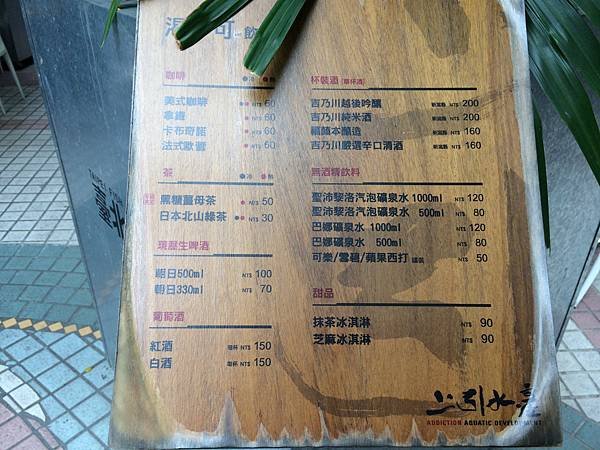 可 飲
咖啡 ●冷 ●熱
美式咖啡 NT$ 60
拿鐵 NT$ 60
卡布奇諾 NT$ 60
法式歐蕾 NT$ 60
茶 ●冷 ●熱
黑糖薑母茶 NT$ 50
日本北山綠茶 NT$ 30
現壓生啤酒
朝日500ml NT$ 100
朝日330ml NT$ 70
葡萄酒
紅酒 單杯 150
白酒 單杯 150
杯裝酒(單杯酒)
吉乃川越後吟釀 新潟縣 NT$ 200
吉乃川純米酒 新潟縣 NT$ 200
福顏本釀造 新潟縣 NT$ 160
吉乃川嚴選辛口清酒 新潟縣 NT$ 160
無酒精飲料
聖沛黎洛汽泡礦泉水 1000ml NT$ 120
聖沛黎洛汽泡礦泉水 500ml NT$ 80
巴娜礦泉水 1000ml NT$ 120
巴娜礦泉水 500ml NT$ 80
可樂/雪碧/蘋果西打 罐裝 NT$ 50
甜品
抹茶冰淇淋 NT$ 90
芝麻冰淇淋 NT$ 90
上引水產
ADDICTION AQUATIC DEVELOPMENT